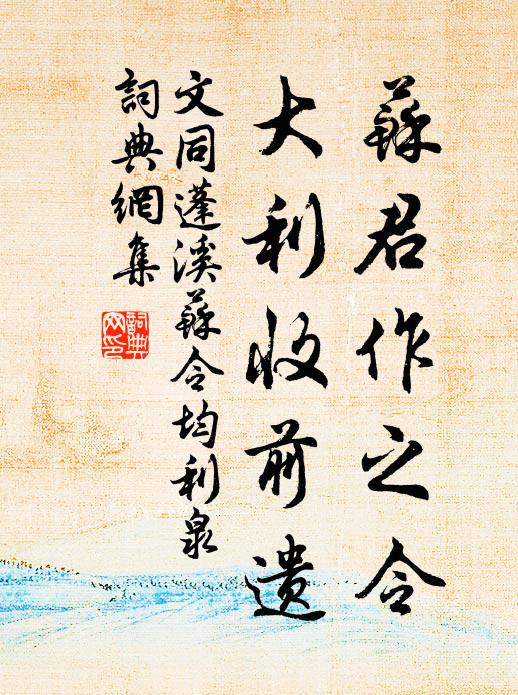 蘇君作之令
大利收前遺
文同蓬溪蘇令均利泉
詞典網集
詞典網印